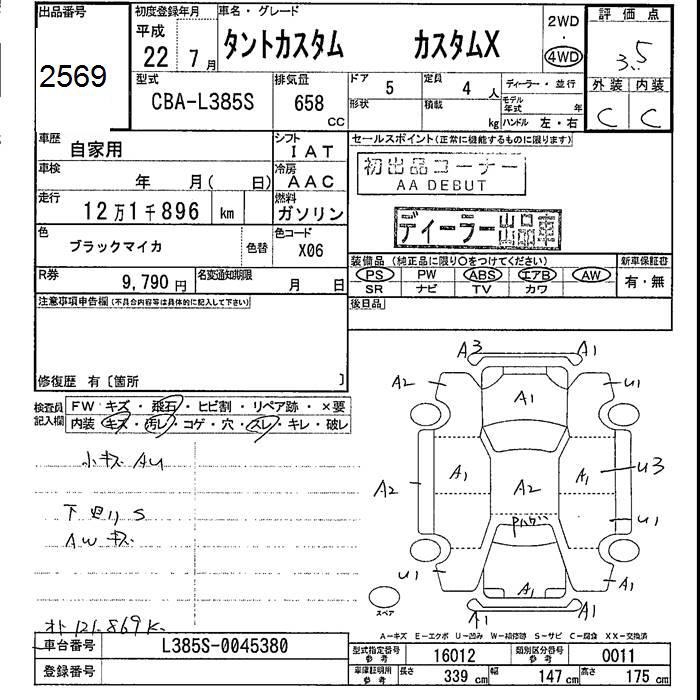 出品番号
2569
初度登録年月
平成
22 7月
車名・グレード
タントカスタム カスタムX
2WD
・
4WD
評価点
3.5
外装 内装
C C
型式
CBA-L385S
排気量
658
CC
ドア
5
定員
4 人
形状
積載
kg
ディーラー・並行
モデル年式 年
ハンドル 左・右
車歴
自家用
シフト
IAT
車検
年 月( 日)
冷房
AAC
走行
12万1千896 km
燃料
ガソリン
色
ブラックマイカ
色替
色コード
X06
R券
9,790円
名変通知期限
月 日
セールスポイント(正常に機能するものに限ります)
初出品コーナー
AA DEBUT
ディーラー出品車
装備品(純正品に限り○をつけてください)
PS PW ABS エアB AW
SR ナビ TV カワ
新車保証書
有・無
後日品
注意事項申告欄(不具合内容等は具体的に記入して下さい)
修復歴 有〔箇所 〕
検査員記入欄
FW キズ・飛石・ヒビ割・リペア跡・×要
内装 キズ・汚レ・コゲ・穴・スレ・キレ・破レ
小キズ AU
下廻り S
AW キズ
オト 121.869K
A3 A1
A2 A1 U1
A1 A1 U3
A2 A2
U1
U1 A1 A1
A1 A1
スペア
A－キズ E－エクボ U－凹み W－補修跡 S－サビ C－腐食 XX－交換済
車台番号
L385S-0045380
登録番号
型式指定番号
参考
16012
類別区分番号
参考
0011
車庫証明用
参考
長さ
339 cm
幅
147 cm
高さ
175 cm